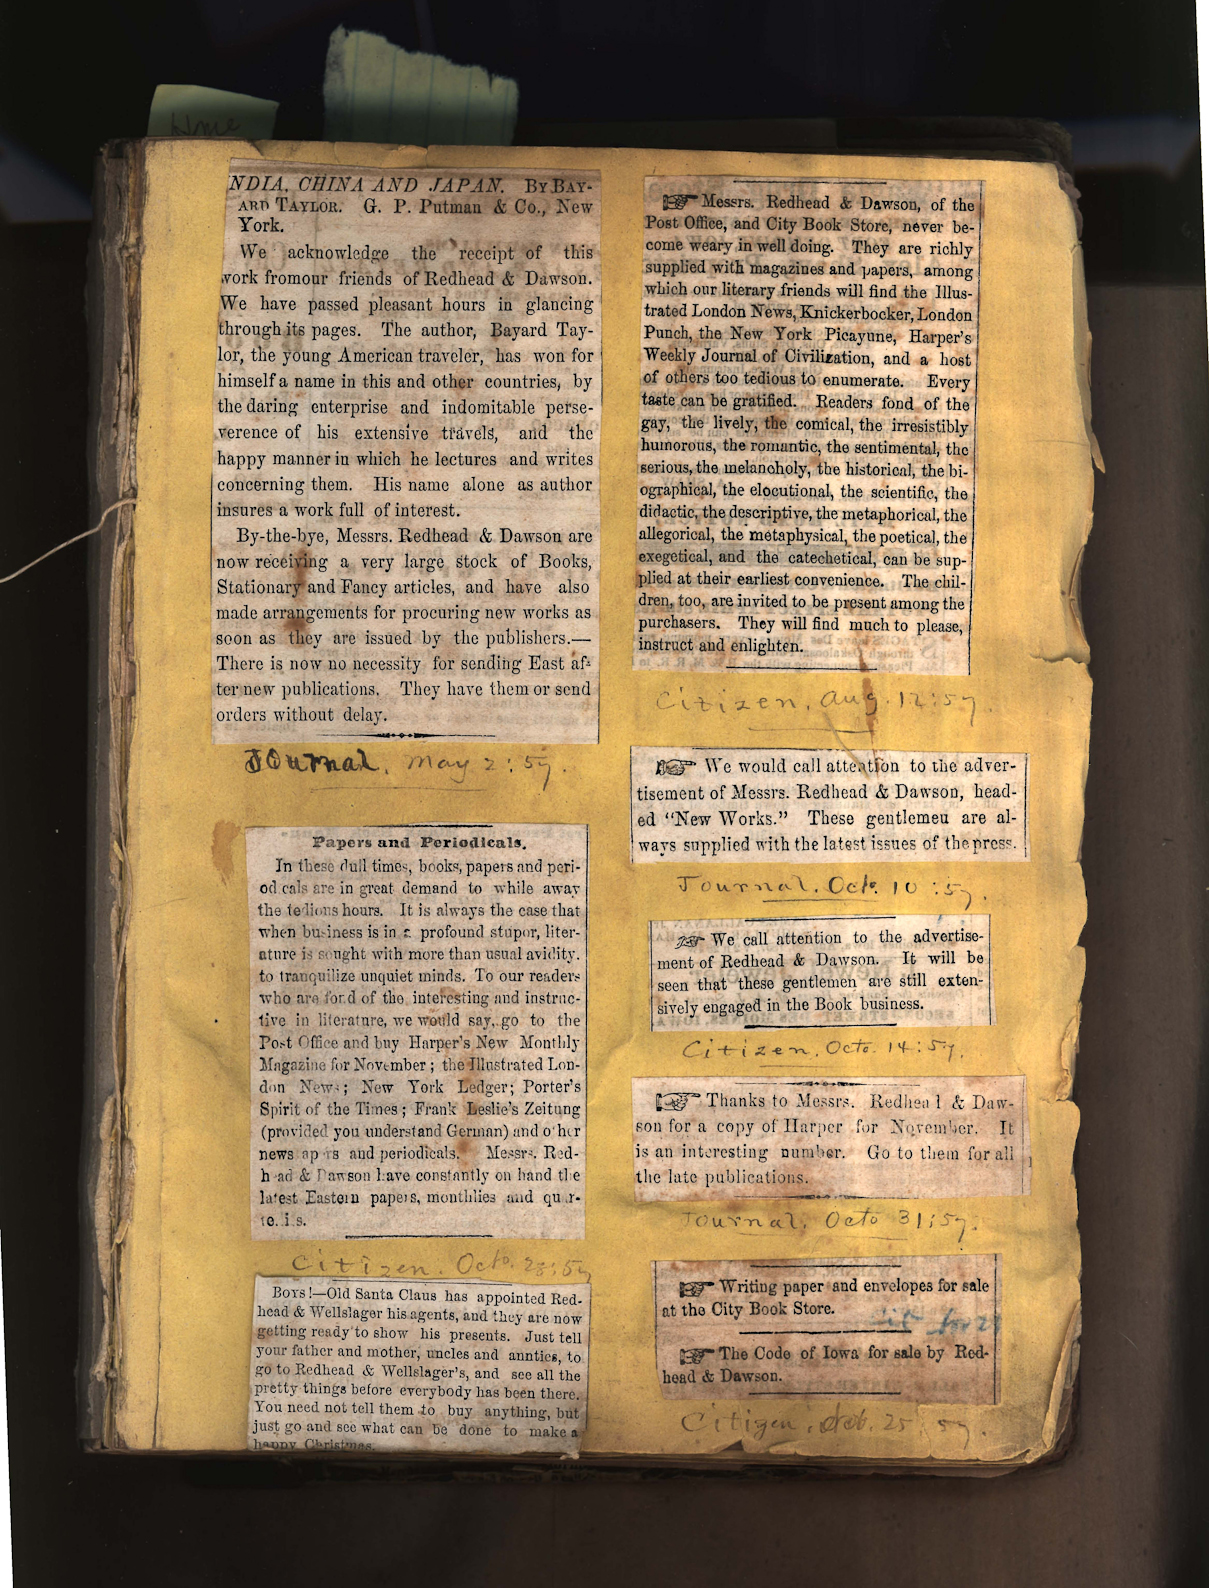 Home
NDIA, CHINA AND JAPAN. BY BAY-
ARD TAYLOR. G. P. Putman & Co., New
York.
We acknowledge the receipt of this
work fromour friends of Redhead & Dawson.
We have passed pleasant hours in glancing
through its pages. The author, Bayard Tay-
lor, the young American traveler, has won for
himself a name in this and other countries, by
the daring enterprise and indomitable perse-
verence of his extensive travels, and the
happy manner in which he lectures and writes
concerning them. His name alone as author
insures a work full of interest.
By-the-bye, Messrs. Redhead & Dawson are
now receiving a very large stock of Books,
Stationary and Fancy articles, and have also
made arrangements for procuring new works as
soon as they are issued by the publishers.—
There is now no necessity for sending East af-
ter new publications. They have them or send
orders without delay.
Journal, May 2:57.
Papers and Periodicals.
In these dull times, books, papers and peri-
od cals are in great demand to while away
the tedious hours. It is always the case that
when business is in a profound stupor, liter-
ature is sought with more than usual avidity.
to tranquilize unquiet minds. To our readers
who are fond of the interesting and instruc-
tive in literature, we would say, go to the
Post Office and buy Harper's New Monthly
Magazine for November; the Illustrated Lon-
don News; New York Ledger; Porter's
Spirit of the Times; Frank Leslie's Zeitung
(provided you understand German) and other
news ap rs and periodicals. Messrs. Red-
h ad & Dawson have constantly on hand the
latest Eastern papers, monthlies and qu r-
te. i s.
Citizen. Octo. 28:57
BOYS!—Old Santa Claus has appointed Red-
head & Wellslager his agents, and they are now
getting ready to show his presents. Just tell
your father and mother, uncles and annties, to
go to Redhead & Wellslager's, and see all the
pretty things before everybody has been there.
You need not tell them to buy anything, but
just go and see what can be done to make a
happy Christmas.
☞ Messrs. Redhead & Dawson, of the
Post Office, and City Book Store, never be-
come weary in well doing. They are richly
supplied with magazines and papers, among
which our literary friends will find the Illus-
trated London News, Knickerbocker, London
Punch, the New York Picayune, Harper's
Weekly Journal of Civilization, and a host
of others too tedious to enumerate. Every
taste can be gratified. Readers fond of the
gay, the lively, the comical, the irresistibly
humorous, the romantic, the sentimental, the
serious, the melancholy, the historical, the bi-
ographical, the elocutional, the scientific, the
didactic, the descriptive, the metaphorical, the
allegorical, the metaphysical, the poetical, the
exegetical, and the catechetical, can be sup-
plied at their earliest convenience. The chil-
dren, too, are invited to be present among the
purchasers. They will find much to please,
instruct and enlighten.
Citizen, Aug. 12:57.
☞ We would call attention to the adver-
tisement of Messrs. Redhead & Dawson, head-
ed "New Works." These gentlemeu are al-
ways supplied with the latest issues of the press.
Journal. Octo. 10:57.
☞ We call attention to the advertise-
ment of Redhead & Dawson. It will be
seen that these gentlemen are still exten-
sively engaged in the Book business.
Citizen, Octo. 14:57.
☞ Thanks to Messrs. Redhea l & Daw-
son for a copy of Harper for November. It
is an interesting number. Go to them for all
the late publications.
Journal, Octo 31:57.
☞ Writing paper and envelopes for sale
at the City Book Store.
☞ The Code of Iowa for sale by Red-
head & Dawson.
Citizen, 25, 57.